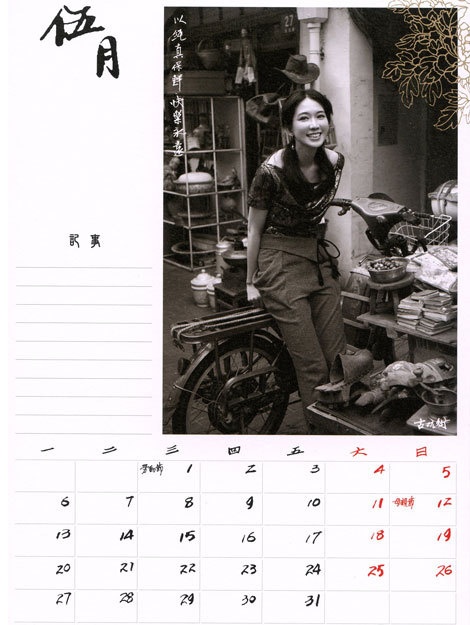 伍月
以純真保鮮 快樂永遠
27
記事
一 二 三 四 五 六 日
勞動節 1 2 3 4 5
6 7 8 9 10 11 母親節 12
13 14 15 16 17 18 19
20 21 22 23 24 25 26
27 28 29 30 31